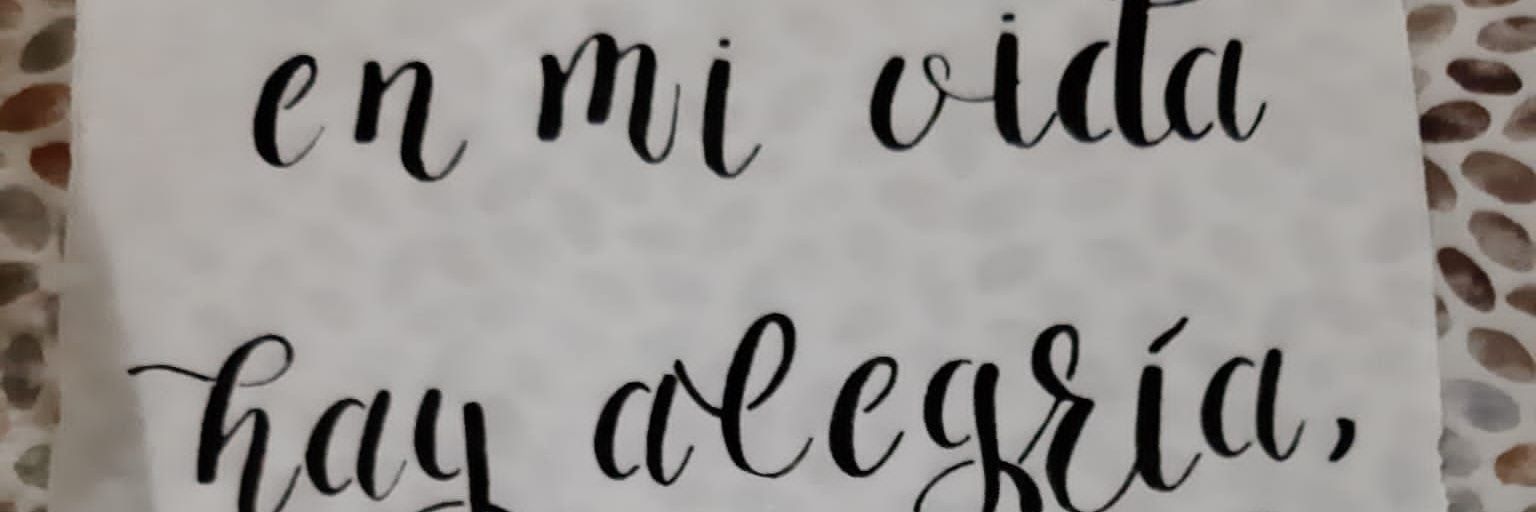 en mi vida
hay alegría,